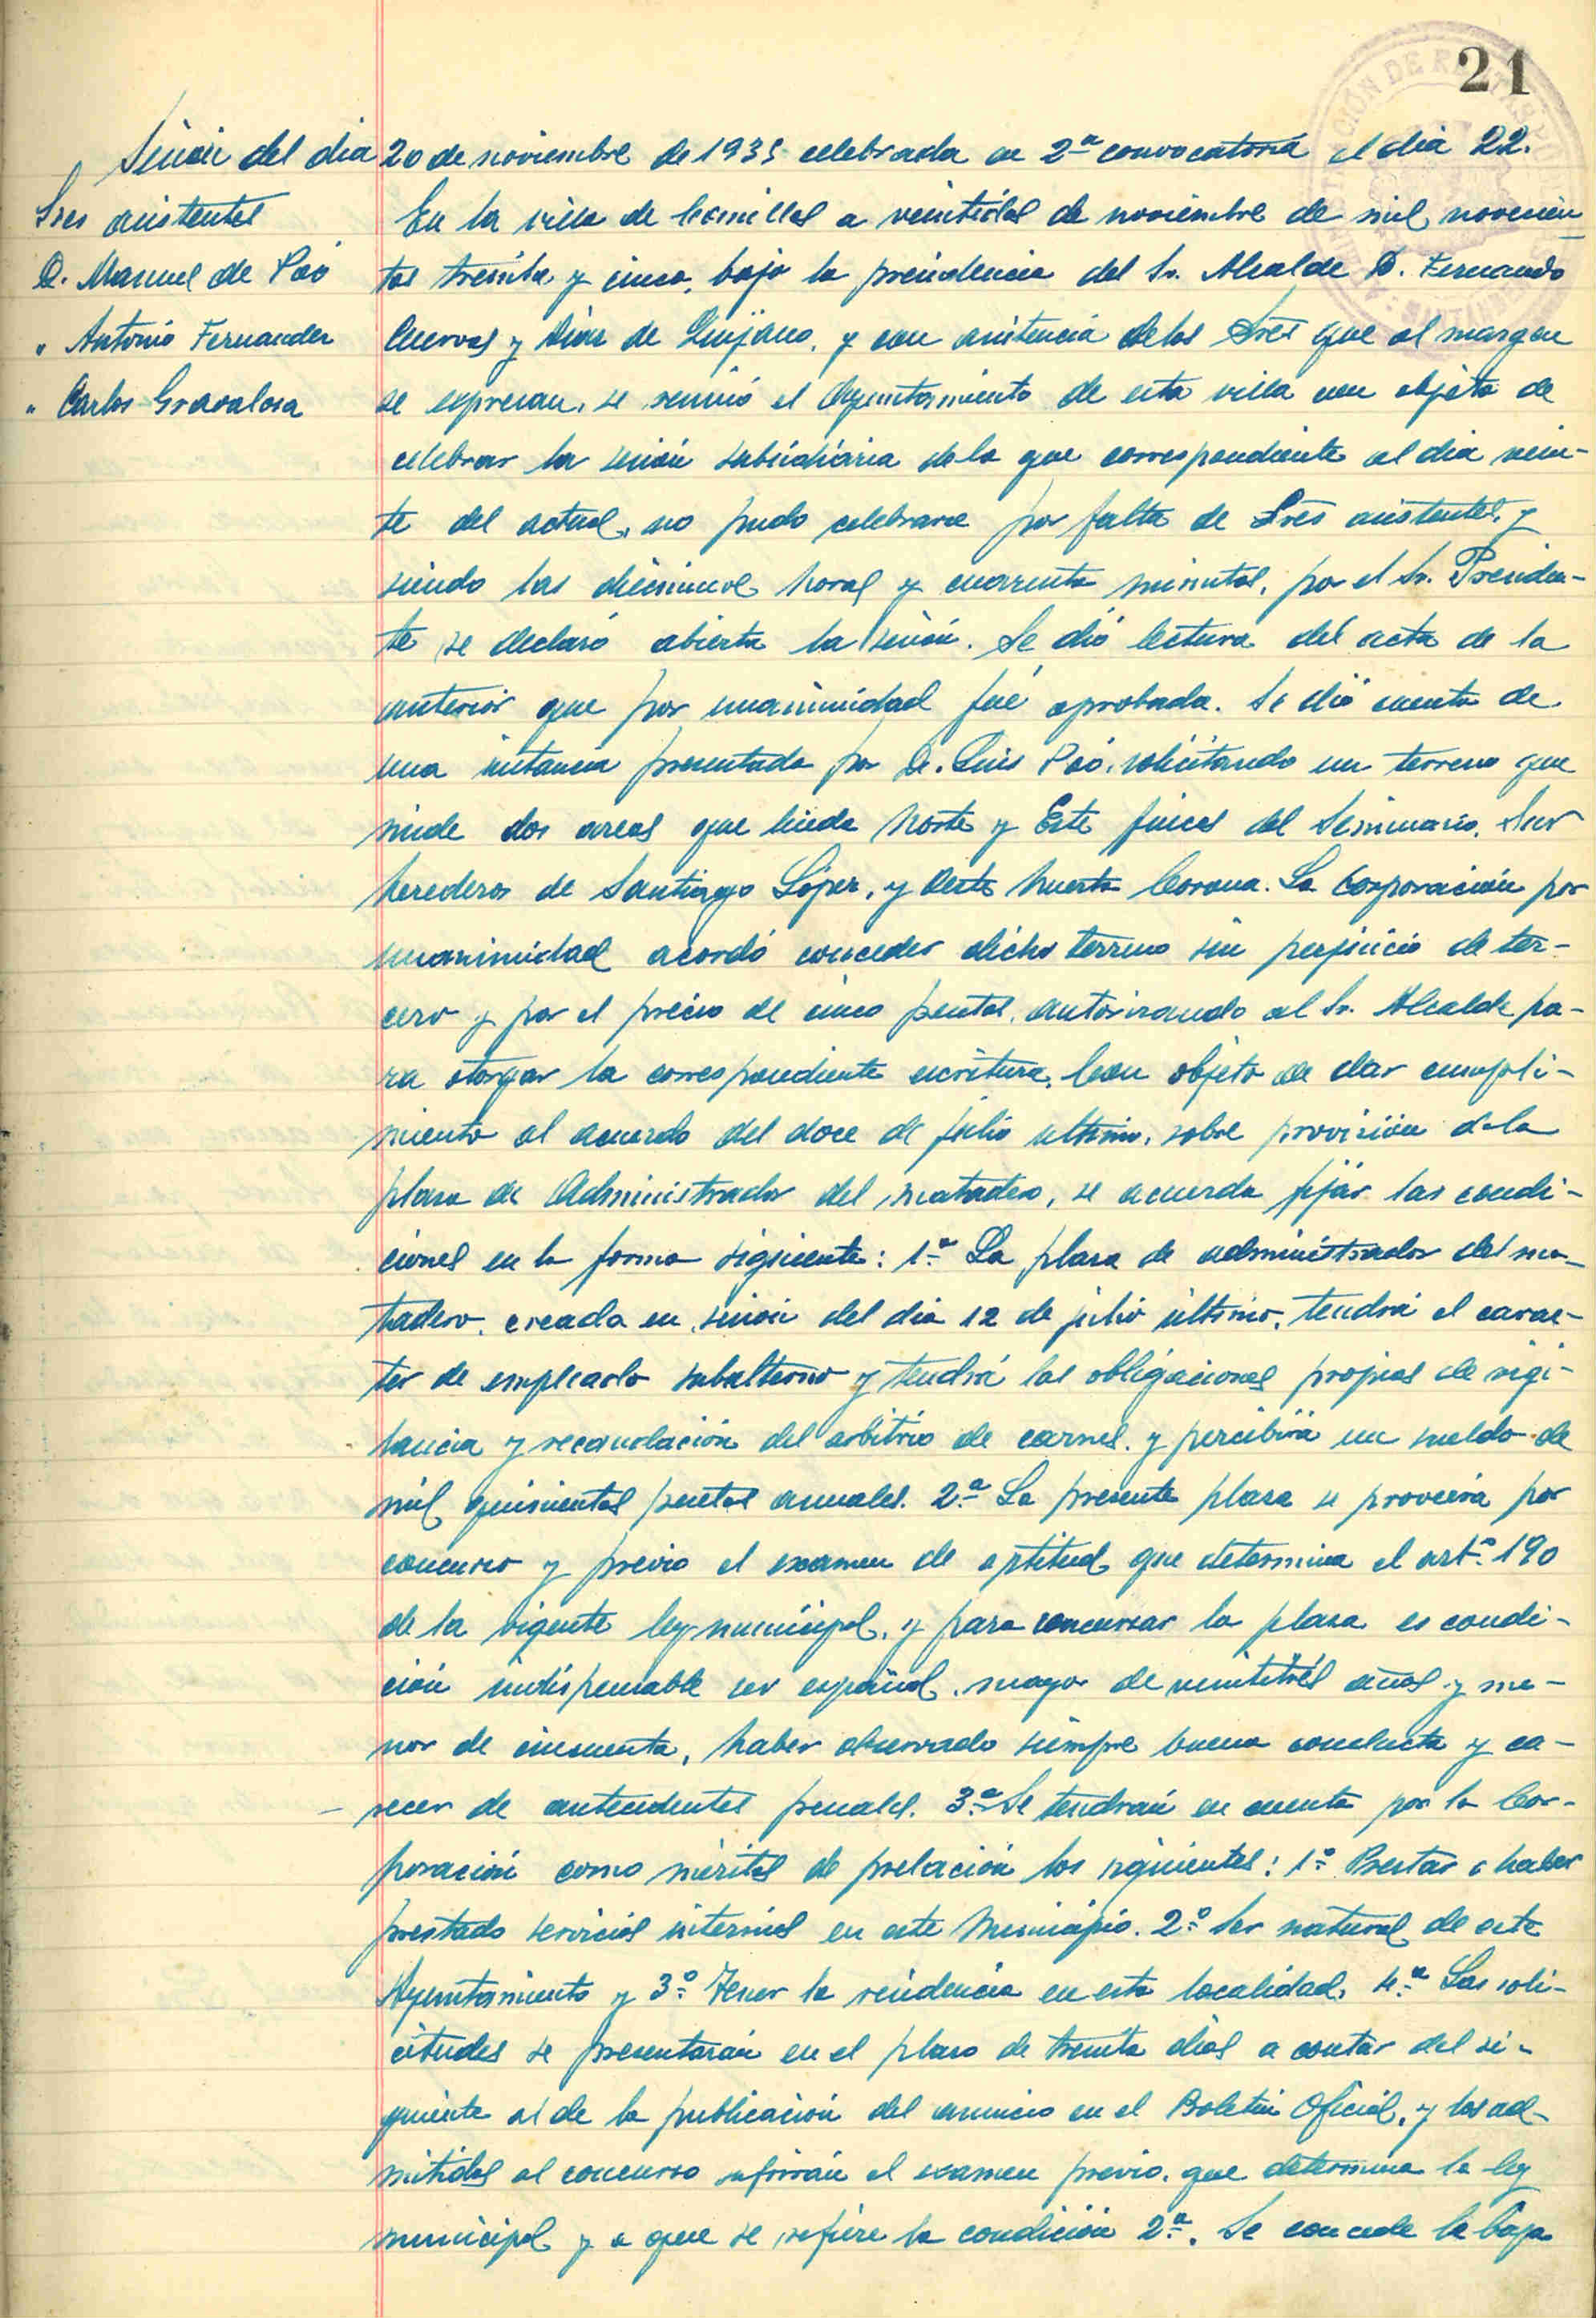 21
Sesión del dia 20 de noviembre de 1935 celebrada en 2ª convocatoria el dia 22.
Sres asistentes
D. Manuel de Poó
" Antonio Fernandez
" Carlos Gravalosa
En la villa de Comillas a veintidos de noviembre de mil novecien-
tos treinta y cinco, bajo la presidencia del Sr. Alcalde D. Fernando
Cuevas y Diaz de Quijano, y con asistencia de los Sres que al margen
se expresan, se reunió el Ayuntamiento de esta villa con objeto de
celebrar la sesión subsidiaria de la que correspondiente al dia vein-
te del actual, no pudo celebrarse por falta de Sres asistentes, y
siendo las diecinueve horas y cuarenta minutos, por el Sr. Presiden-
te se declaró abierta la sesión. Se dió lectura del acta de la
anterior que por unanimidad fué aprobada. Se dió cuenta de
una instancia presentada por D. Luis Poó, solicitando un terreno que
mide dos areas que linda Norte y Este fincas del Seminario, Sur
herederos de Santiago López, y Oeste huerta Corona. La Corporación por
unanimidad acordó conceder dicho terreno sin perjuicio de ter-
cero y por el precio de cinco pesetas, autorizando al Sr. Alcalde pa-
ra otorgar la correspondiente escritura. Con objeto de dar cumpli-
miento al acuerdo del doce de julio ultimo, sobre provisión de la
plaza de Administrador del matadero, se acuerda fijar las condi-
ciones en la forma siguiente: 1ª La plaza de administrador del ma-
tadero, creada en sesión del dia 12 de julio último, tendrá el carac-
ter de empleado subalterno y tendrá las obligaciones propias de vigi-
lancia y recaudación del arbitrio de carnes, y percibirá un sueldo de
mil quinientas pesetas anuales. 2ª La presente plaza se proveerá por
concurso y previo el examen de aptitud que determina el artº. 190
de la vigente ley municipal, y para concursar la plaza es condi-
ción indispensable ser español, mayor de veintitrés años y me-
nor de cincuenta, haber observado siempre buena conducta y ca-
recer de antecedentes penales. 3ª Se tendrán en cuenta por la Cor-
poración como méritos de prelación los siguientes: 1º Prestar o haber
prestado servicios interinos en este Municipio. 2º Ser natural de este
Ayuntamiento y 3º Tener la residencia en esta localidad. 4ª Las soli-
citudes se presentarán en el plazo de treinta dias a contar del si-
guiente al de la publicación del anuncio en el Boletin Oficial, y los ad-
mitidos al concurso sufrirán el examen previo, que determina la ley
municipal y a que se refiere la condición 2ª. Se concede la baja